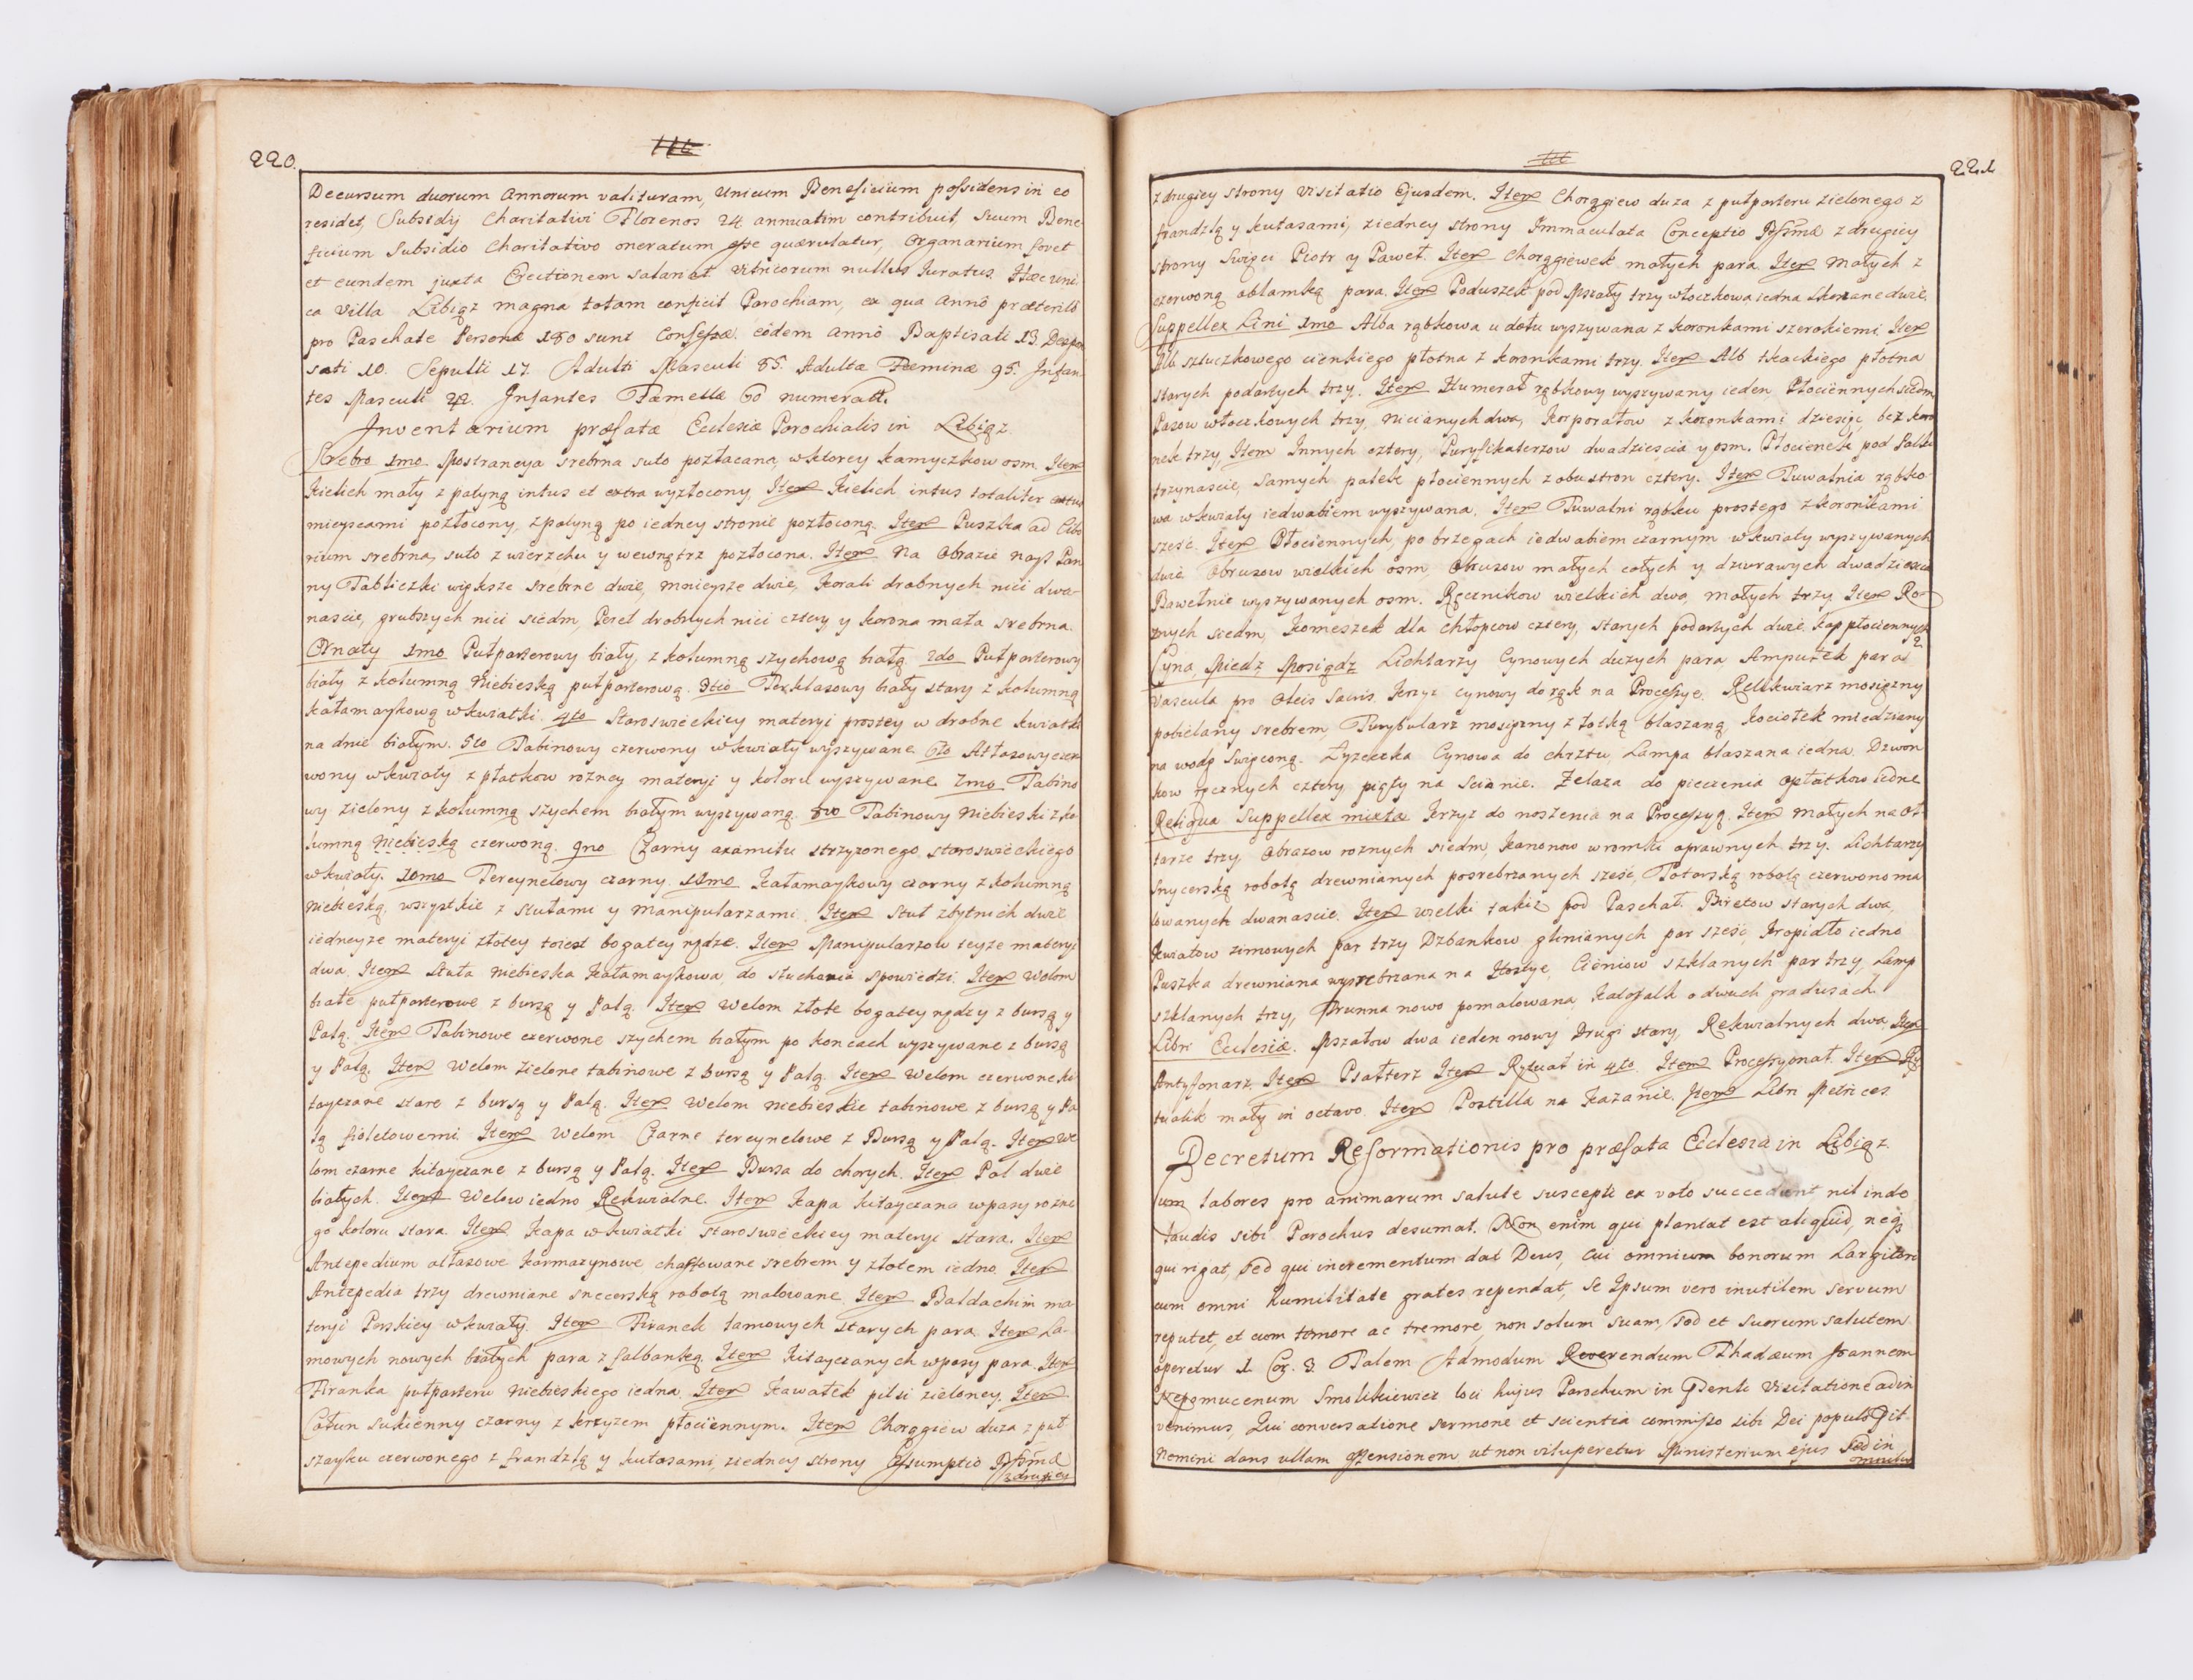 220.
Decursum duorum Annorum valituram, Unicum Beneficium possidens in eo
residet, Subsidij Charitativi Florenos 24 annuatim contribuit, Suum Bene-
ficium Subsidio Charitativo oneratum esse quærulatur, Organarium fovet
et eundem juxta Erectionem salariat. Vitricorum nullus Juratus. Hæc uni-
ca Villa Libiąz magna totam conficit Parochiam, ex qua Annô præteritô
pro Paschate Personæ 180 sunt Confessæ. eôdem Annô Baptisati 13. Despon
sati 10. Sepulti 17. Adulti Masculi 85. Adultæ Fæminæ 95. Infan-
tes Masculi Infantes Fæmellæ 60 numerati.
Inventarium præfatæ Ecclesiæ Parochialis in Libiąz
Srebro 1mo Monstrancya srebrna suto pozłacana, w ktorey kamyczkow osm. Item
Kielich mały z patyną intus et extra wyzłocony. Item Kielich intus totaliter extus
mieyscami pozłocony, z patyną po iedney stronie pozłoconą. Item Puszka ad Cibo
rium srebrna, suto z wierzchu y wewnątrz pozłocona. Item Na Obrazie Nayś Pan
ny Tabliczki większe srebrne dwie, mnieysze dwie, Korali drobnych nici dwa-
nascie, grubszych nici siedm, Pereł drobnych nici cztery y korona mała srebrna.
Ornaty 1mo Putparterowy biały, z kolumną szychową białą 2do Putparterowy
biały z kolumną Niebieską putparterową. 3tio Perklasowy biały stary z kolumną
kałamaykową w kwiatki. 4to Staroswieckiey materyi prostey w drobne kwiatki
na dnie białym. 5to Tabinowy czerwony w kwiaty wyszywane 6to Atłasowy czer
wony w kwiaty z płatkow rozney materyi y koloru wyszywane 7mo Tabino
wy zielony z kolumną szychem białym wyszywaną. 8vo Tabinowy Niebieski z ko
lumną Niebieską czerwoną. 9no Czarny axamitu strzyzonego staroswieckiego
w kwiaty. 10mo Tercynelowy czarny. 11mo Kałamaykowy czarny z kolumną
Niebieską, wszystkie z stułami y Manipularzami. Item Stuł zbytnich dwie
iedneyze materyi złotey toiest bogatey rządze. Item Manipularzow teyze materyi
dwa. Item Stuła niebieska Kałamaykowa, do słuchania spowiedzi. Item Welom
białe putparterowe z bursą y Palą. Item Welom złote bogatey rządzy z bursą y
Palą. Item Tabinowe czerwone szychem białym po koncach wyszywane z bursą
y Palą. Item Welom zielone tabinowe z bursą y Palą. Item Welom czerwone ki
tayczane stare z bursą y Palą. Item Welom niebieskie tabinowe z bursą y Pa
lą fioletowemi. Item Welom Czarne tercynelowe z Bursą y Palą. Item We
lom czarne kitayczane z bursą y Palą. Item Bursa do chorych. Item Pal dwie
białych. Item Welow iedno Rekwialne. Item Kapa kitayczana w pasy rozne
go koloru stara. Item Kapa w kwiatki staroswieckiey materyi stara. Item
Antepedium atłasowe karmazynowe chaftowane srebrem y złotem iedno. Item
Antepedia trzy drewniane snecerską robotą malowane. Item Baldachin ma
teryi Perskiey w kwiaty. Item Firanek lamowych starych para. Item La-
mowych nowych białych para z falbanką. Item Kitayczanych w pasy para. Item
Firanka putparteru niebieskiego iedna. Item Kawałek pilsi zieloney. Item
Całun sukienny czarny z krzyzem płociennym. Item Chorągiew duza z put
szarfku czerwonego z frandzlą y kutasami, z iedney strony Assumptio Bssmæ
z drugiey
221
z drugiey strony Visitatio Ejusdem. Item Chorągiew duza z putparteru zielonego z
frandzlą y kutasami, z iedney strony Immaculata Conceptio Bssmæ z drugiey
strony Swięci Piotr y Paweł. Item Chorągiewek małych para. Item Małych z
czerwoną oblamką para. Item Poduszek pod Mszały trzy włoczkowa iedna skorzane dwie.
Suppellex Lini 1mo Alba rąbkowa u dołu wyszywana z koronkami szerokiemi Item
Alb sztuczkowego cienkiego płotna z koronkami trzy. Item Alb tkackiego płotna
starych podartych trzy. Item Humerał rąbkowy wyszywany ieden Płociennych siedm
Pasow włoczkowych trzy, nicianych dwa, Korporałow z koronkami dziesięć, bez koro
nek trzy, Item Innych cztery, Puryfikaterzow dwadziescia y osm. Płocienek pod Palki
trzynascie, Samych palek płociennych z obu stron cztery. Item Tuwalnia rąbko-
wa w kwiaty iedwabiem wyszywana. Item Tuwalni rąbku prostego z koronkami
szesć. Item Płociennych, po brzegach iedwabiem czarnym w kwiaty wyszywanych
dwie. Obrusow wielkich osm, Obrusow małych całych y dziurawych dwadziescia
Bawełnie wyszywanych osm. Ręcznikow wielkich dwa, małych trzy. Item Ro-
znych siedm, Komeszek dla chłopcow cztery, starych podartych dwie. Kap płociennych
2
Cyna, Miedz, Mosiądz Lichtarzy Cynowych duzych para, Ampułek para
Vascula pro Oleis Sacris. Krzyz Cynowy do rąk na Processye. Relikwiarz mosiązny
pobielany srebrem, Turybularz mosięzny z łotką blaszaną, kociołek miedziany
na wodę Swięconą. Łyzeczka Cynowa do chrztu, Lampa blaszana iedna Dzwon
kow ręcznych cztery, piąty na Scianie. Zelaza do pieczenia opłatkow iedne
Reliqua Suppellex mixta Krzyz do noszenia na Processyą. Item Małych na oł-
tarze trzy Obrazow roznych siedm, Kanonow w ramki oprawnych trzy. Lichtarzy
Snycerską robotą drewnianych posrebrzanych szesć, Tokarską robotą czerwono ma
lowanych dwanascie. Item wielki takiz pod Paschał. Biretow starych dwa,
Kwiatow zimowych par trzy Dzbankow glinianych par szesć, Kropidło iedno
Puszka drewniana wysrebrzana na Hostye, Cieniow szklanych par trzy, Lamp
szklanych trzy, Trunna nowo pomalowana, Katafalk o dwuch gradusach.
Libri Ecclesiæ. Mszałow dwa ieden nowy Drugi stary, Rekwialnych dwa, Item
Antyfonarz. Item Psałterz Item Rytuał in 4to. Item Processyonał. Item Ry-
tualik mały in octavo. Item Postilla na Kazanie. Item Libri Metrices.
Decretum Reformationis pro præfata Ecclesia in Libiąz
um labores pro animarum salute suscepti ex voto succedunt nil inde
laudis sibi Parochus desumat. Non enim qui plantat est aliquid, neq
qui rigat, Sed qui incrementum dat Deus, Cui omnium bonorum Largitori
cum omni humilitate grates rependat, Se Ipsum vero inutilem servum
reputet, et cum timore ac tremore, non solum suam, Sed et suorum salutem
operetur 1. Cor. 3. Talem Admodum Reverendum Thadæum Joannem
Nepomucenum Smolikiewicz loci hujus Parochum in Genli Visitatione adin
venimus, Qui conversatione sermone et scientia commisso sibi Dei populo
Nemini dans ullam offensionem ut non vituperetur Ministerium ejus Sed in
omnibus